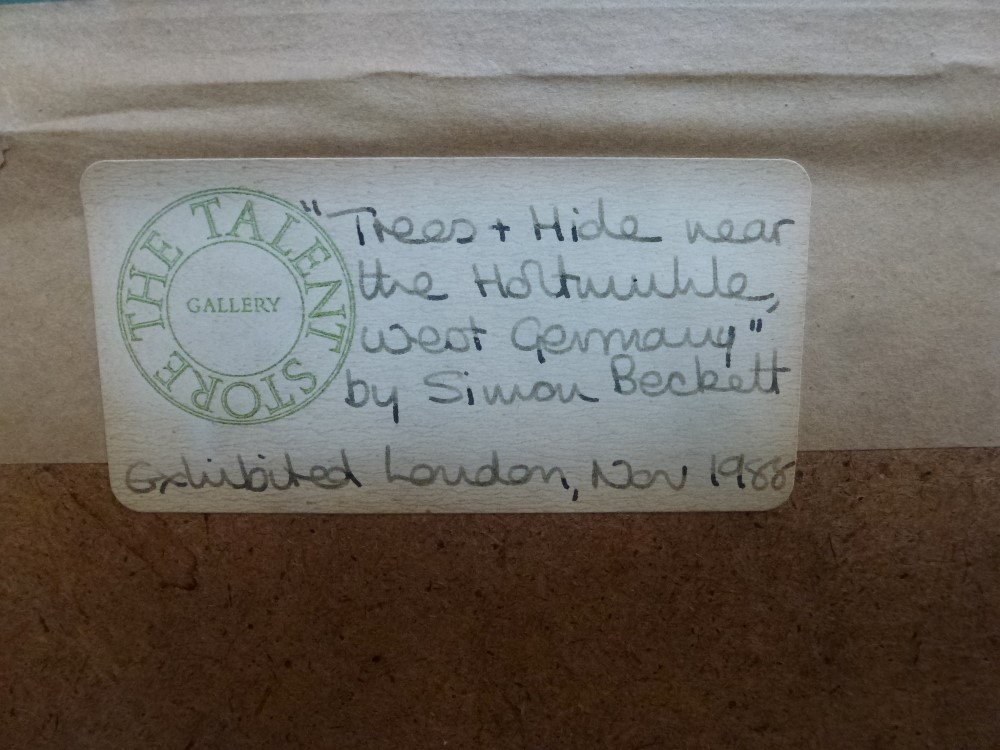 THE TALENT STORE
GALLERY
"Trees + Hide near
the Holtmuhle,
West Germany"
by Simon Beckett
Exhibited London, Nov 1988